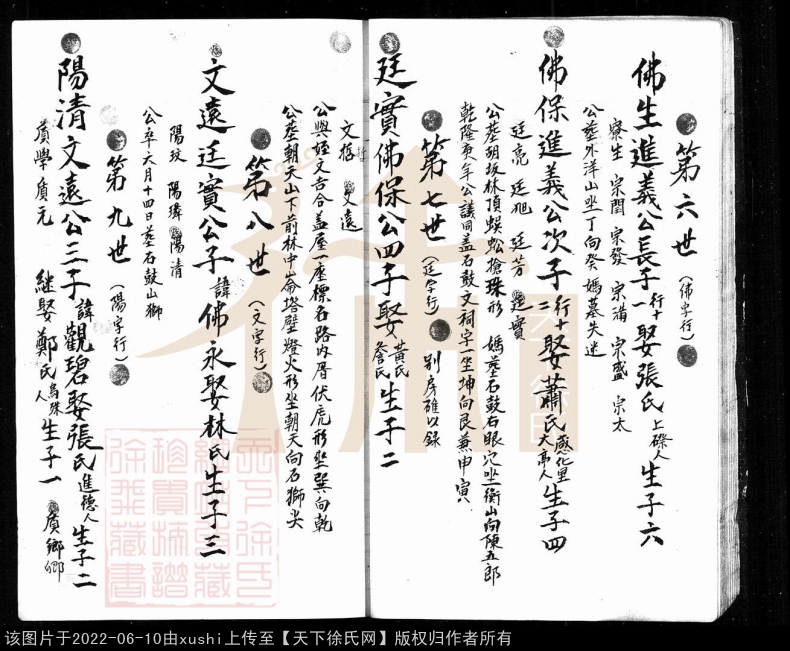 第六世（佛字行）
佛生進義公長子行十一娶張氏上磜人生子六
寮生 宗閏 宗發 宗滿 宗盛 宗太
公塟外洋山坐丁向癸媽墓失迷
佛保進義公次子行十二娶蕭氏感化里大亭人生子四
廷亮 廷旭 廷芳 廷實
公塟胡坂林頂蜈蚣搶珠形 媽塟石鼓石眼穴坐衡山向陳五郎
乾隆庚年公議同盖石鼓文祠字一坐坤向艮兼申寅
第七世（廷字行） 别房碓以錄
廷實佛保公四子娶黃氏詹氏生子二
文 文遠
公與姪文吉合盖屋一座標名路內厝伏虎形坐巽向乾
公塟朝天山下前林中崙塔壁燈火形坐朝天向石獅尖
第八世（文字行）
文遠廷實公子諱佛永娶林氏生子三
陽玟 陽璋 陽清
公卒六月十四日塟石鼓山獅
第九世（陽字行）
陽清文遠公三子諱觀碧娶張氏進德人生子二
賡學 賡元 継娶鄭氏烏殊人生子一 賡鄉
天下徐氏
珍貴族譜
徐飛藏書
该图片于2022-06-10由xushi上传至【天下徐氏网】版权归作者所有